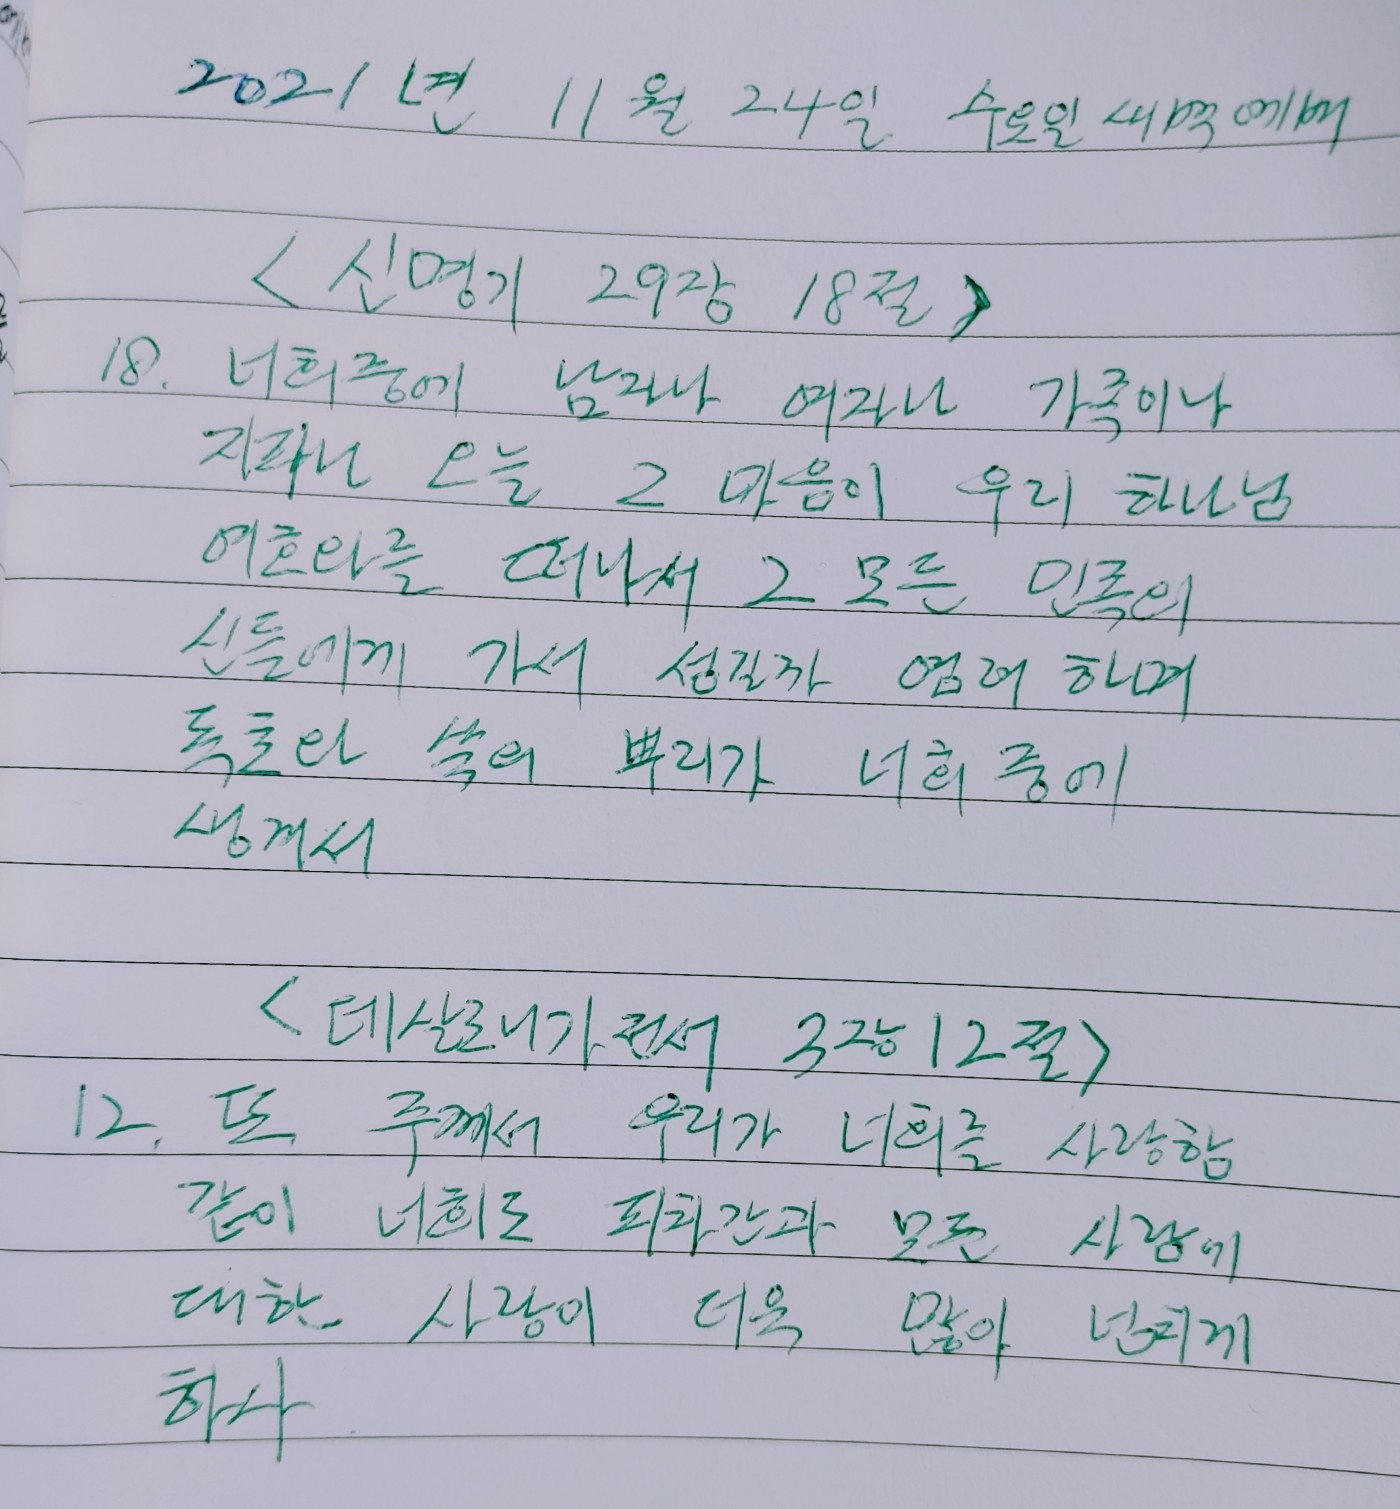 2021년 11월 24일 수요일 새벽예배
<신명기 29장 18절>
18. 너희중에 남자나 여자나 가족이나
지파나 오늘 그 마음이 우리 하나님
여호와를 떠나서 그 모든 민족의
신들에게 가서 섬길까 염려하며
독초와 쑥의 뿌리가 너희 중에
생겨서
<데살로니가전서 3장 12절>
12. 또 주께서 우리가 너희를 사랑함
같이 너희도 피차간과 모든 사람에
대한 사랑이 더욱 많아 넘치게
하사